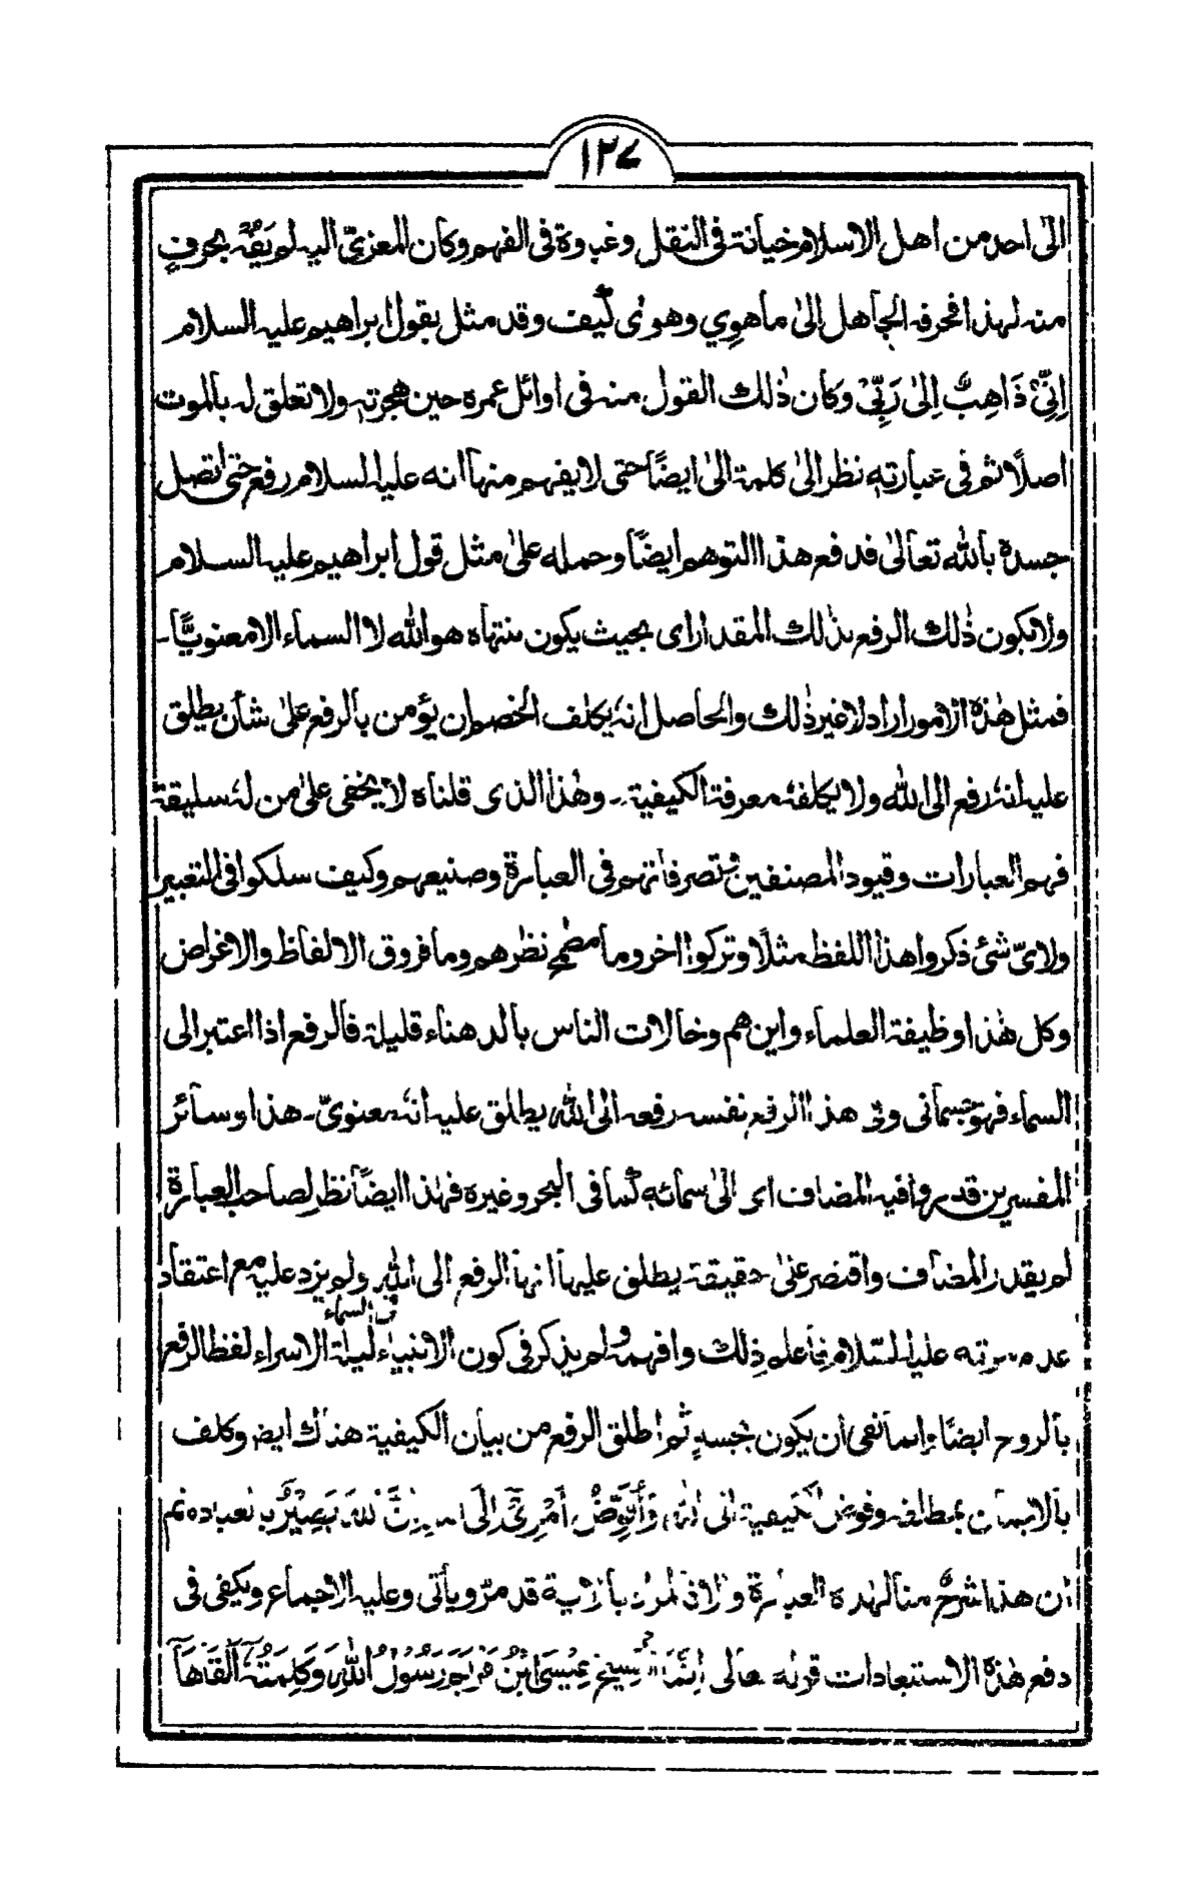 ١٢٧
الىٰ احد من اهل الاسلام خيانة فى النقل وغبوة فى الفهم وكان المعزىّ اليه لم يَفُه بحرفٍ
منه لهذا فحرفه الجاهل الىٰ ما هوِي وهوٰى كيف وقد مثل بقول ابراهيم عليه السلام
اِنِّىْ ذَاهِبٌ اِلىٰ رَبِّىْ وكان ذٰلك القول منه فى اوائل عمره حين هجرته ولا تعلق له بالموت
اصلًا ثم فى عبارته نظر الىٰ كلمة الىٰ ايضًا حتى لا يفهم منها انه عليه السلام رفع حتى اتصل
جسده بالله تعالىٰ فدفع هذا التوهم ايضًا وحمله علىٰ مثل قول ابراهيم عليه السلام
ولا يكون ذٰلك الرفع بذٰلك المقدار اى بحيث يكون منتهاه هو الله لا السماء الا معنويًّا۔
فمثل هٰذه الامور اراد لا غير ذٰلك والحاصل انهٗ يكلف الخصم ان يؤمن بالرفع علىٰ شان يطلق
عليه انهٗ رفع الى الله ولا يكلفهٗ معرفة الكيفية۔ وهٰذا الذى قلناه لا يخفى علىٰ من لهٗ سليقة
فهم العبارات وقيود المصنفين وتصرفاتهم فى العبارة وصنيعهم وكيف سلكوا فى التعبير
ولاىّ شئ ذكروا هذا اللفظ مثلًا وتركوا اخر وما مطمح نظرهم وما فروق الالفاظ والاغراض
وكل هٰذا وظيفة العلماء واين هم وخالات الناس بالدهناء قليلة فالرفع اذا اعتبر الى
السماء فهو جسمانى وفى هذا الرفع نفسه رفعه الى الله يطلق عليه انهٗ معنوىّ۔ هذا وسائر
المفسرين قدروا فيه المضاف اى الىٰ سمائه كما فى البحر وغيره فهٰذا ايضًا نظر لصاحب العبارة
لم يقدر المضاف واقتصر علىٰ حقيقة يطلق عليها انها الرفع الى الله ولم يزد عليه مع اعتقاد
فى السماء
عدم موته عليه السلام فاعلم ذٰلك وافهم ولم يذكر فى كون الانبياء ليلة الاسراء لفظ الرفع
بالروح ايضًا وانما نفى ان يكون بجسدٍ ثم اطلق الرفع من بيان الكيفية هناك ايضا وكلف
بالايمان بمطلقه وفوض الكيفية الى الله وَاُفَوِّضُ اَمْرِىْ اِلَى اللهِ اِنَّ اللهَ بَصِيْرٌ بِالعباد ثم
ان هذا شرحٌ منا لهذه العبارة والا فالمراد بالاية قد مرّ ويأتى وعليه الاجماع ويكفى فى
دفع هٰذه الاستبعادات قوله تعالى اِنَّمَا الْمَسِيْحُ عِيْسَى ابْنُ مَرْيَمَ رَسُوْلُ اللهِ وَكَلِمَتُهٗ اَلْقَاهَا